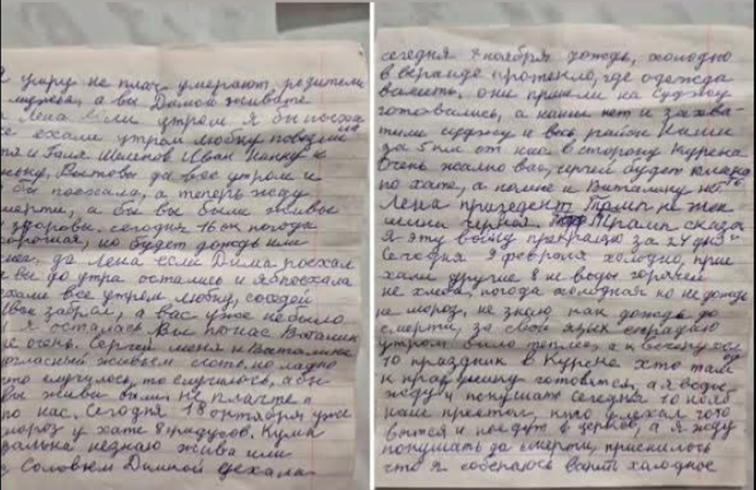 я умру не плач умерают родители
а вы Димой живите
Лена если утром я бы поеха
ехали утром любку повезли
и Галя Шиленов Иван Нанку и
да все утром и
бы поехала, а теперь жду
смерти, а бы вы были живые
здоровы. сегодня 16 ок погода
хорошая, но будет дождь или
да Лена если Дима поехал
вы до утра остались и я бпоехала
ехали все утром любку, соседой
забрал, а вас уже небыло
я осталась Вы по нас Виталик
не очень. Сергей меня и Виталика
живьем сесть, но ладно
что случилось, то случилось, абы
вы живы были не плачте
по нас. Сегодня 18 октября уже
мороз у хате 8 градусов. Кума
незнаю жива или
с Соловьем Димкой уехала
сегодня 8 ноября дождь, холодно
в веранде протекло, где одежда
они пришли на Суджу
готовились, а наши нет и захва-
тили суджу и весь район Наши
за 5 км от нас в сторону Курска
Очень жалко вас, Сергей будет
по хате, а по мне и Виталику нет
Лена призедент Трамп не
Трамп сказал
Я эту войну прекращу за 24 дня"
Сегодня 9 февраля холодно, прие
хали другие 8 не воды горячей
не хлеба, погода холодная но не дождь
не мороз, не знаю как дождь до
смерти, за свой язык страдаю
утром было теплее, а к вечеру хол
10 праздник в Курске хто там
к празднику готовится, а я
жду и покушать сегодня 10 нояб
наше престол, кто уехал гото
вится и поедут в церковь, а я жду
покушать до смерти, приснилось
что я собераюсь варить холодное